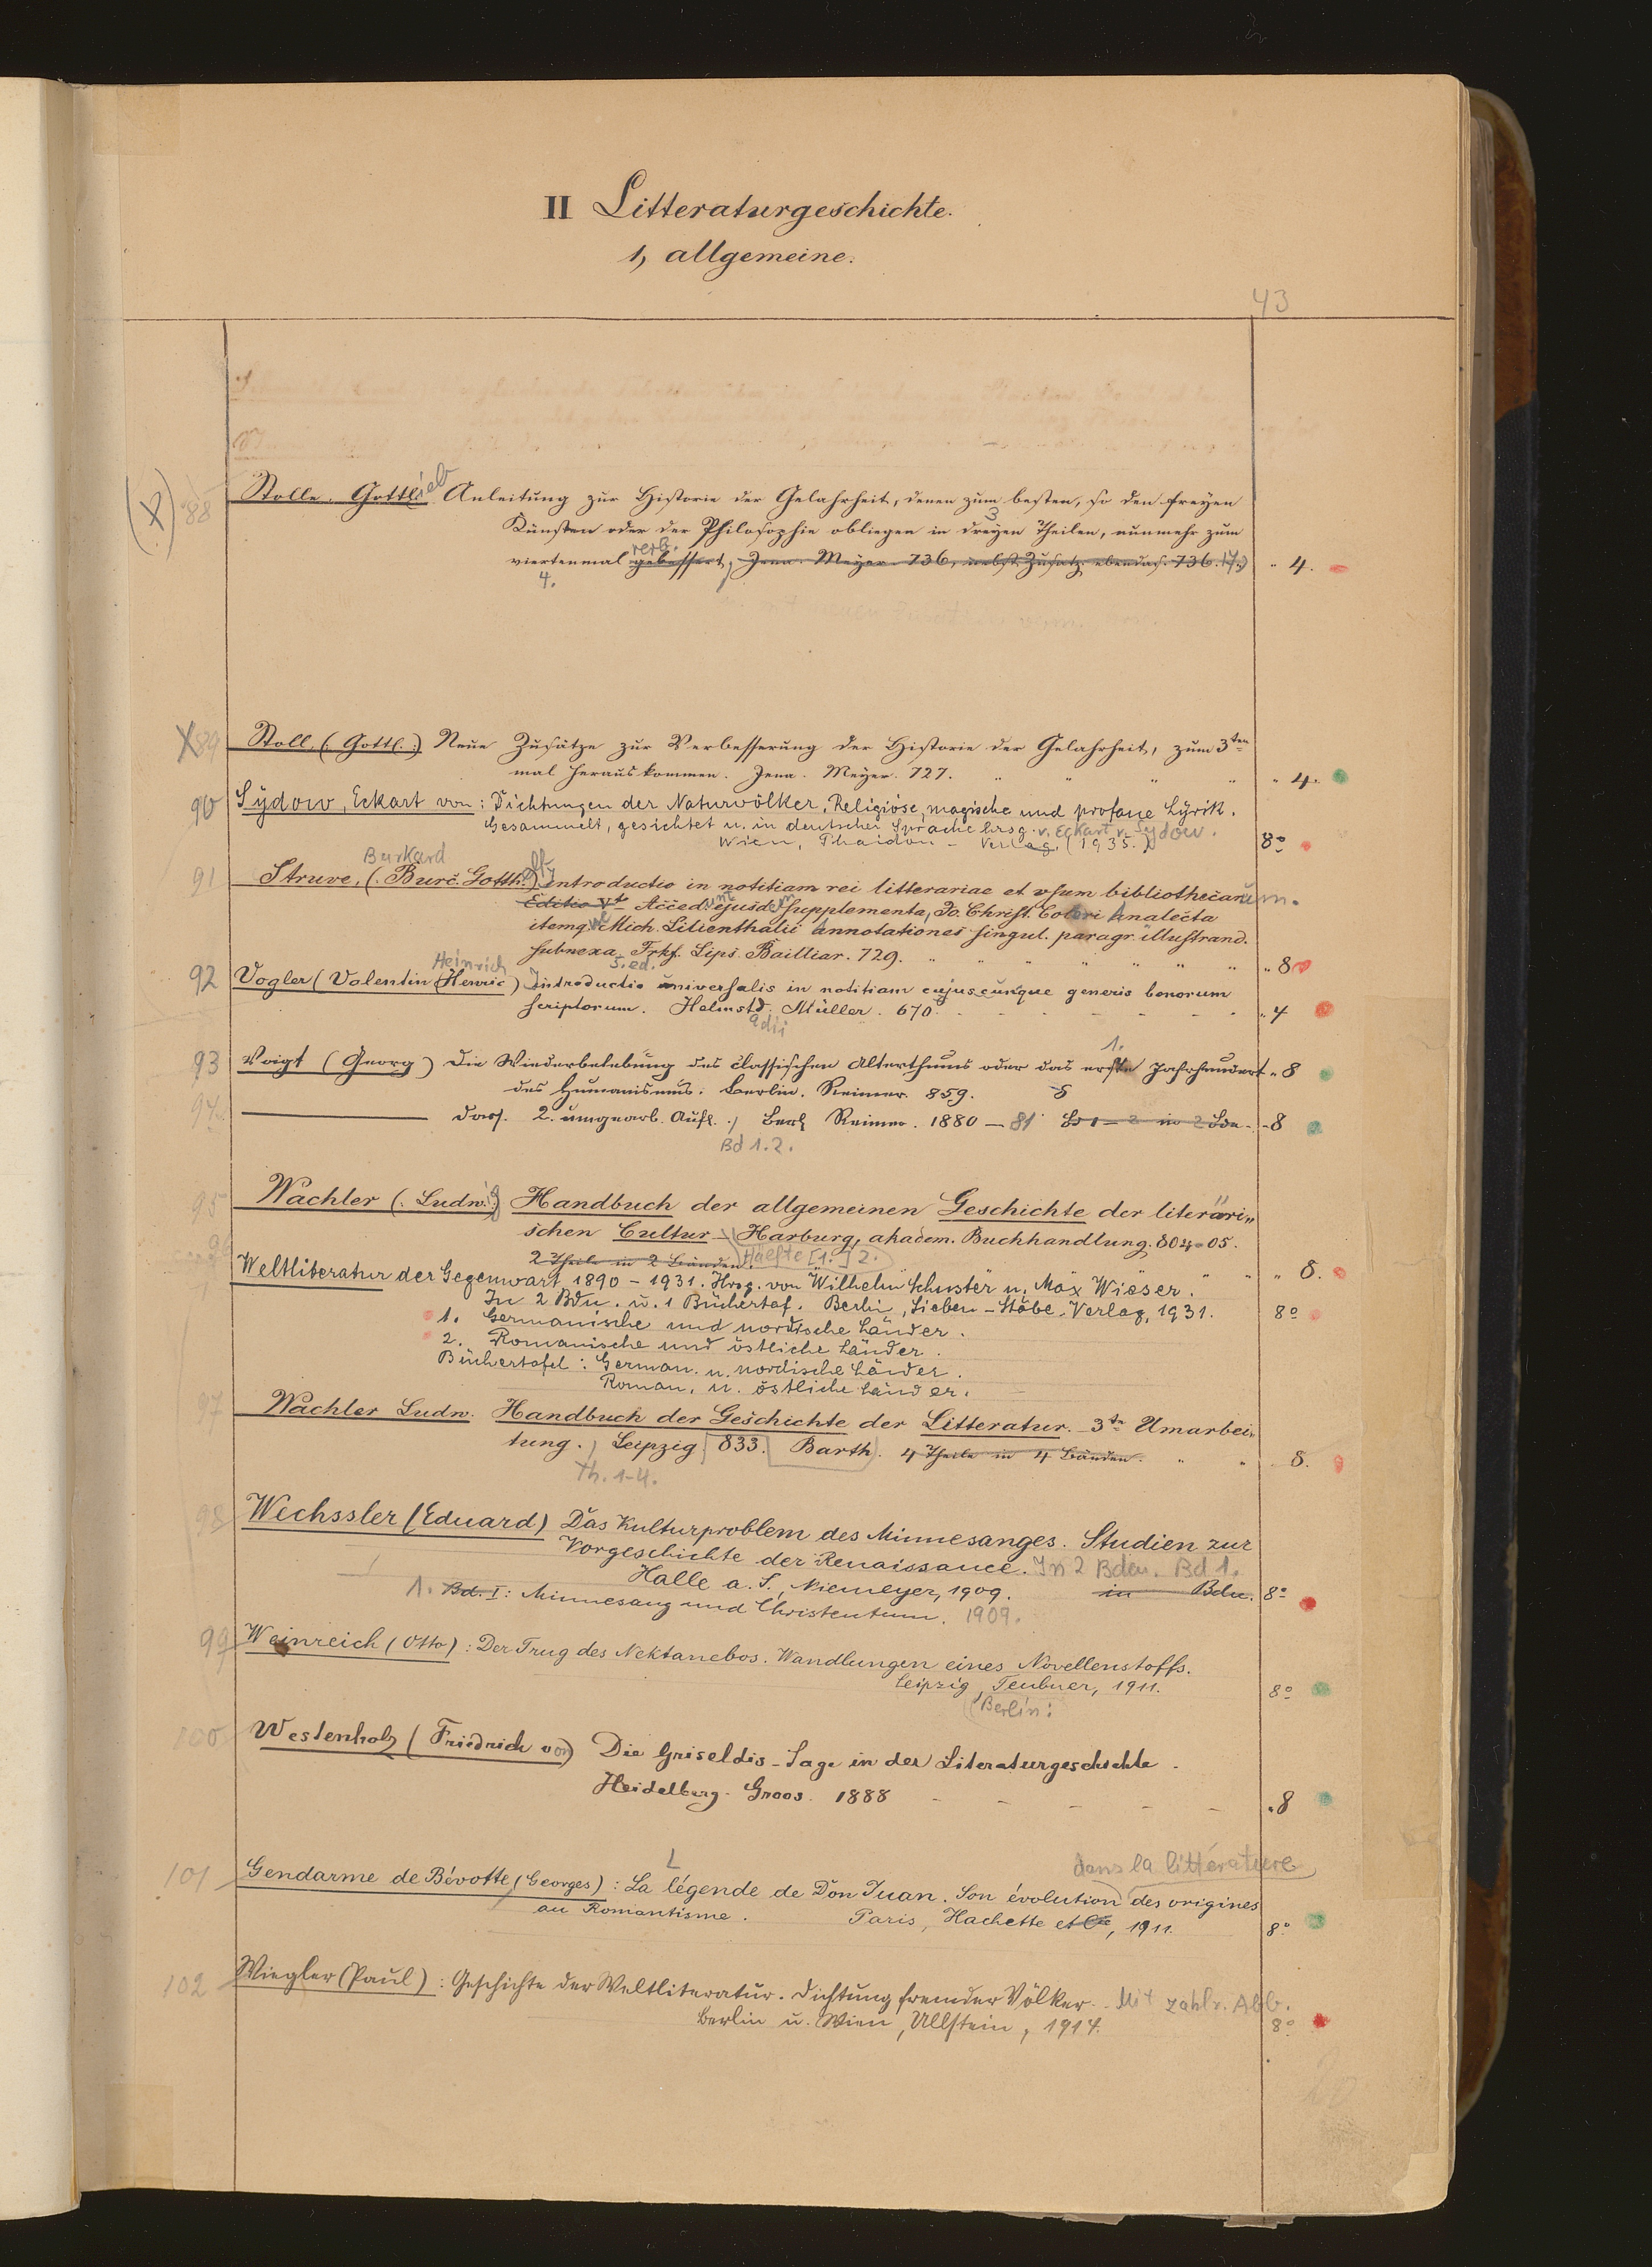 II Litteraturgeschichte.
1, allgemeine.
43
(X) 88
Stolle. Gottlieb Anleitung zur Historie der Gelahrheit, denen zum besten, so den freyen
3
Künsten oder der Philosophie obliegen in dreyen Theilen, nunmehr zum
verb.
viertenmal gebessert, Jena. Meyer. 736, nebst Zusatz ebendas. 736. " 4.
4.
X 89 Stoll, (: Gottl. :) Neue Zusätze zur Verbesserung der Historie der Gelahrheit, zum 3ten
mal herauskommen. Jena. Meyer. 727. " " " " " 4.
90 Sydow, Eckart von: Dichtungen der Naturvölker. Religiöse, magische und profane Lyrik.
Gesammelt, gesichtet u. in deutscher Sprache hrsg. v. Eckart v. Sydow.
Wien, Phaidon-Verlag. (1935.) 8o
Burkard
91 Struve, (: Burc. Gotth. :) introductio in notitiam rei litterariae et usum bibliothecarum.
Editio Vta Acced. ejusdem supplementa, Jo. Christ. Coleri Analecta
itemq. Mich. Lilienthalii annotationes singul. paragr. illustrand.
subnexa. Frkf. Lips. Bailliar. 729. " " " " " " " " 8
5. ed.
Heinrich
92 Vogler (Valentin Henric) Introductio universalis in notitiam cujuscunque generis bonorum
scriptorum. Helmstd. Müller. 670. - - - - - " 4
adii
1.
93 Voigt (Georg) Die Wiederbelebung des classischen Alterthums oder das erste Jahrhundert " 8
des Humanismus. Berlin. Reimer. 859.
94 ——— dass. 2. umgearb. Aufl., Berl. Reimer. 1880 – 81 Bd 1 – 2 in 2 Bdn - 8
Bd 1.2.
95 Wachler (: Ludwig :) Handbuch der allgemeinen Geschichte der literäri„
schen Cultur – Harburg, akadem. Buchhandlung. 804-05.
2 Theile in 2 Bänden. Hälfte [1.] 2. " " " 8.
96 Weltliteratur der Gegenwart 1890 – 1931. Hrsg. von Wilhelm Schuster u. Max Wieser.
In 2 Bdn. u. 1 Büchertaf. Berlin, Sieben-Stäbe-Verlag, 1931. 8o
1. Germanische und nordische Länder.
2. Romanische und östliche Länder.
Büchertafel: German. u. nordische Länder.
Roman. u. östliche Länder.
97 Wachler Ludw. Handbuch der Geschichte der Litteratur. 3te Umarbei„
tung., Leipzig 833. Barth. 4 Theile in 4 Bänden. " " 8.
Th. 1-4.
98 Wechssler (Eduard) Das Kulturproblem des Minnesanges. Studien zur
Vorgeschichte der Renaissance. In 2 Bden. Bd 1.
Halle a. S., Niemeyer, 1909. in Bdn. 8o
1. Bd. I: Minnesang und Christentum. 1909.
99 Weinreich (Otto): Der Trug des Nektanebos. Wandlungen eines Novellenstoffs.
Leipzig, Teubner, 1911. 8o
Berlin:
100 Westenholz (Friedrich von) Die Griseldis-Sage in der Literaturgeschichte.
Heidelberg. Groos. 1888 - - - - - " 8
L dans la littérature
101 Gendarme de Bévotte, (Georges): La légende de Don Juan. Son évolution des origines
au Romantisme. Paris, Hachette et Cie, 1911. 8o
102 Wiegler (Paul): Geschichte der Weltliteratur. Dichtung fremder Völker. Mit zahlr. Abb.
Berlin u. Wien, Ullstein, 1914. 8o